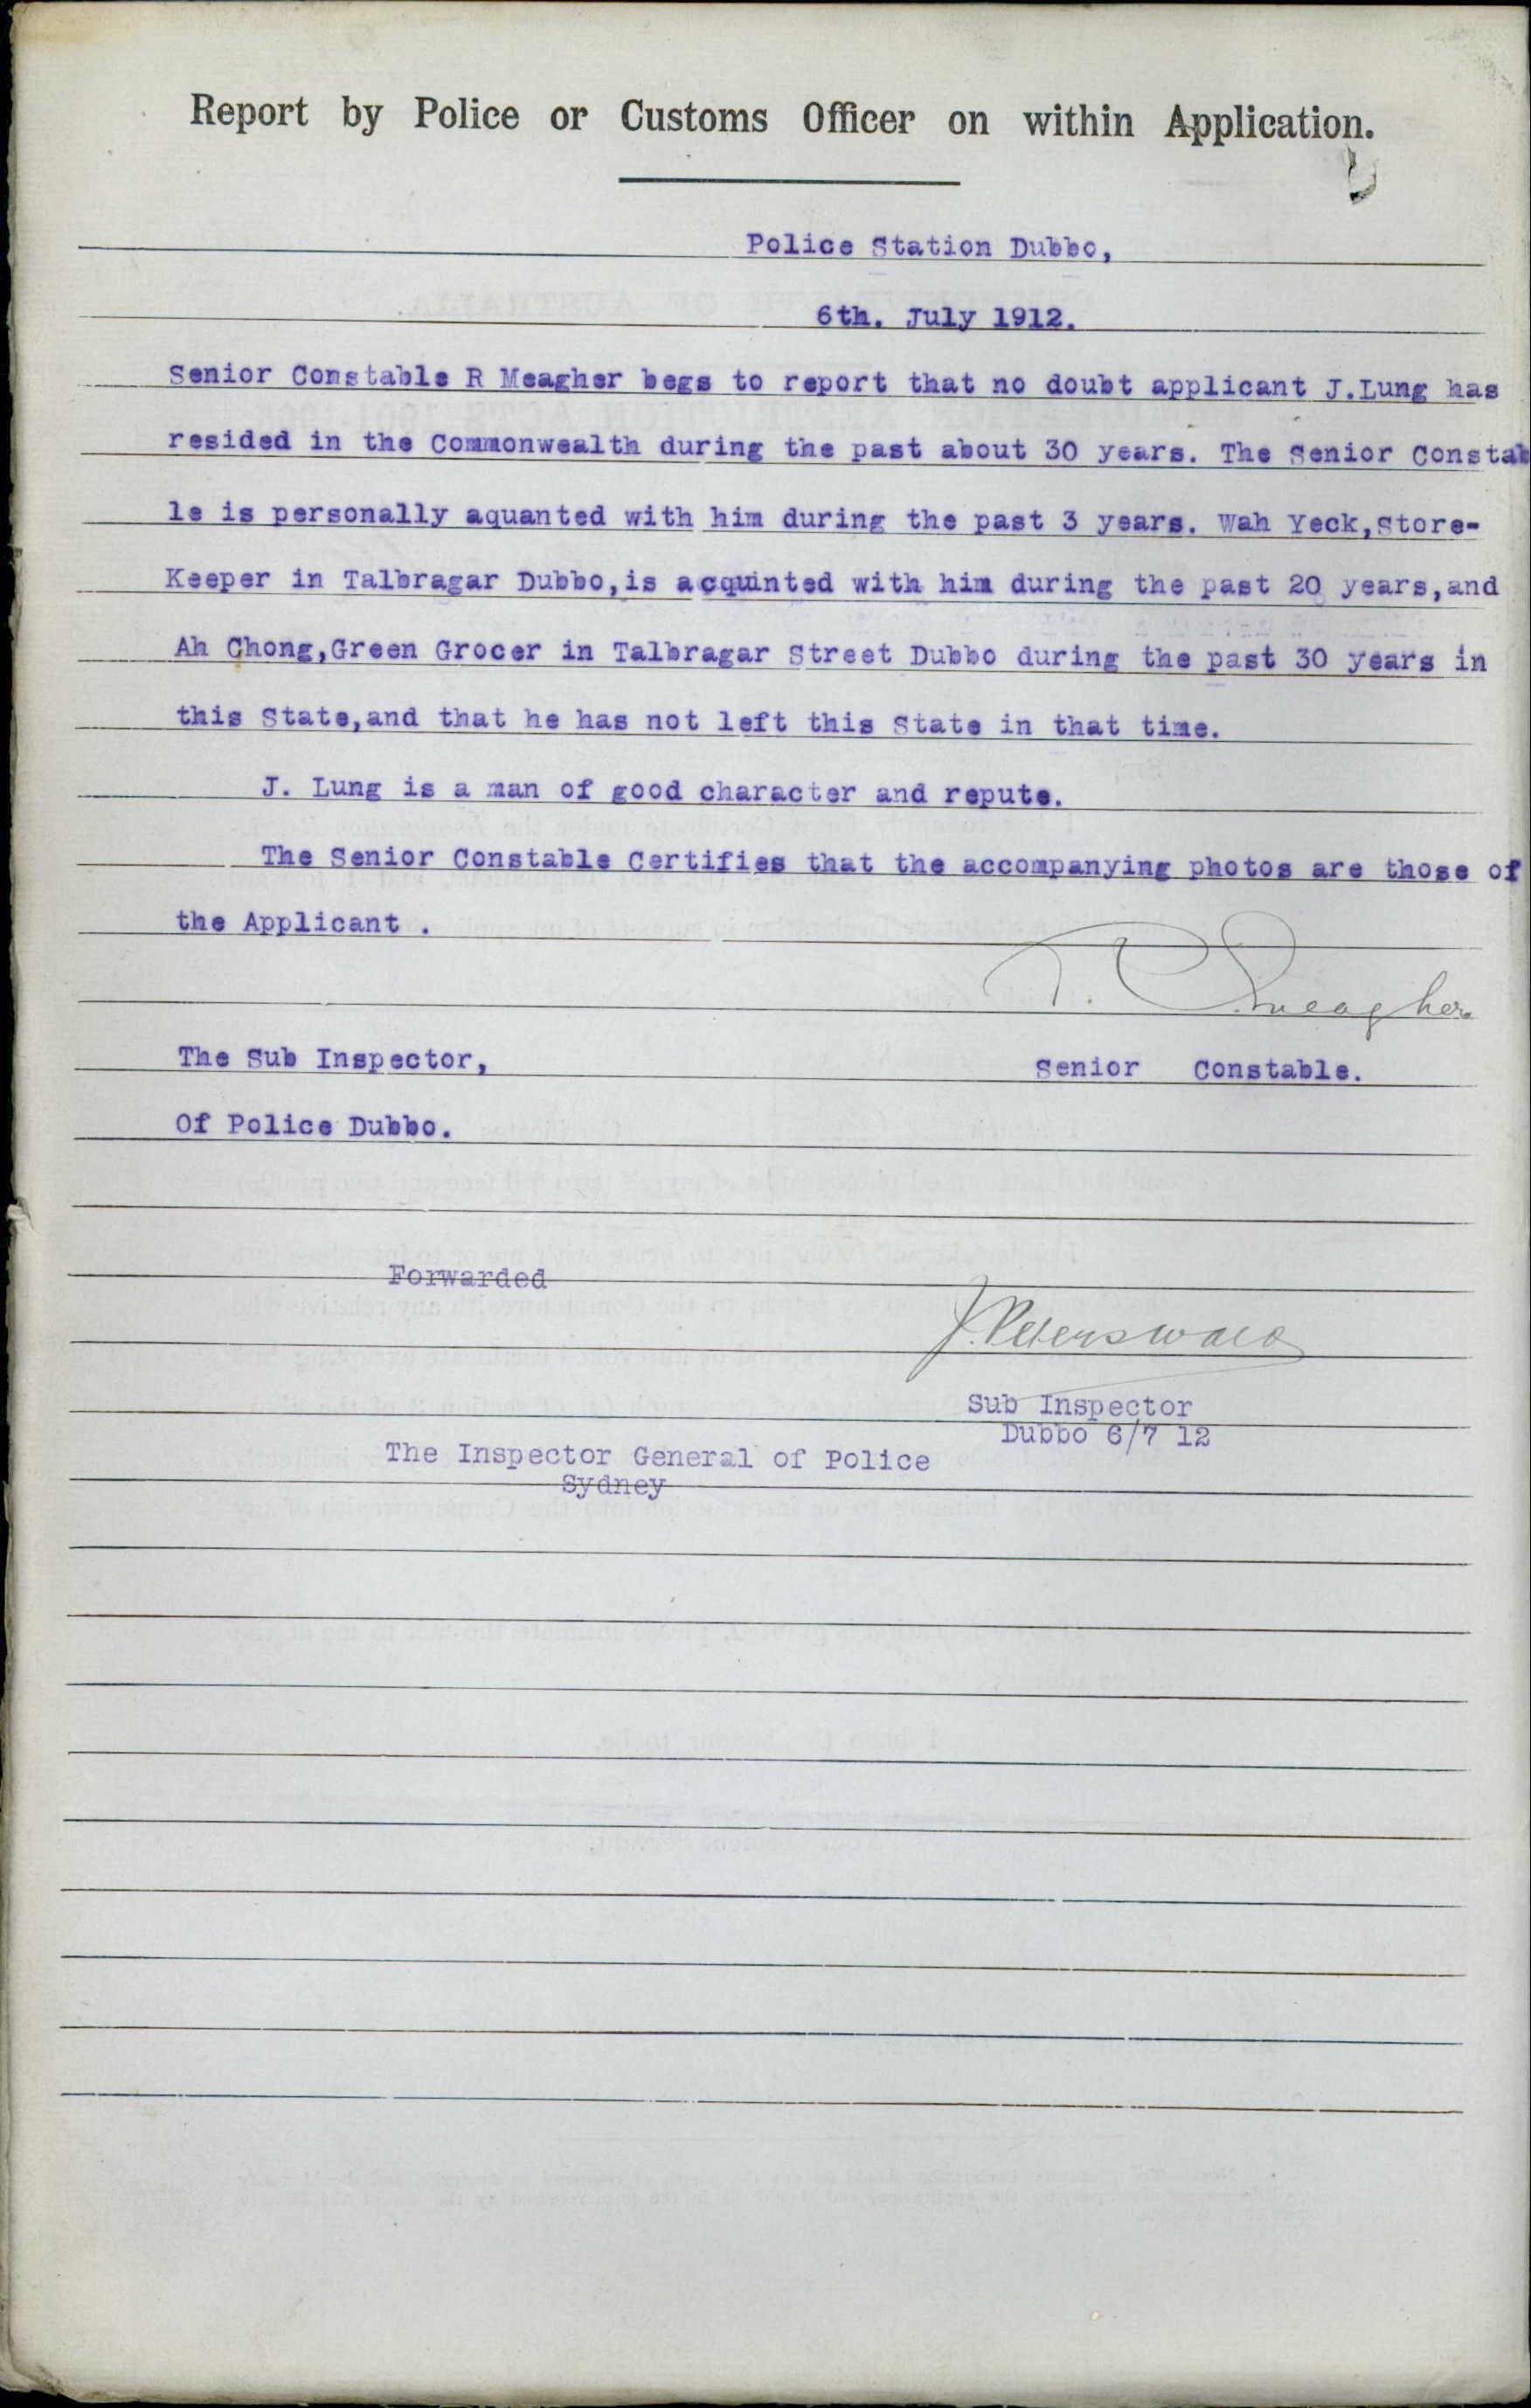 Report by Police or Customs Officer on within Application.
Police Station Dubbo,
6th. July 1912.
Senior Constable R Meagher begs to report that no doubt applicant J.Lung has
resided in the Commonwealth during the past about 30 years. The Senior Constab
le is personally aquanted with him during the past 3 years. Wah Yeck,Store-
Keeper in Talbragar Dubbo,is acquinted with him during the past 20 years,and
Ah Chong,Green Grocer in Talbragar Street Dubbo during the past 30 years in
this State,and that he has not left this State in that time.
J. Lung is a man of good character and repute.
The Senior Constable Certifies that the accompanying photos are those of
the Applicant .
Meagher
The Sub Inspector, Senior Constable.
Of Police Dubbo.
Forwarded
J. Peterswald
Sub Inspector
Dubbo 6/7 12
The Inspector General of Police
Sydney